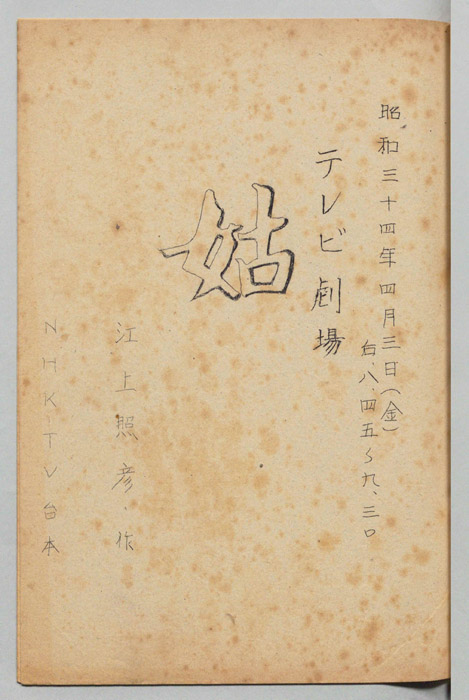 昭和三十四年四月三日(金)
后、八、四五〜九、三〇
テレビ劇場
姑
江上照彦・作
NHKTV台本